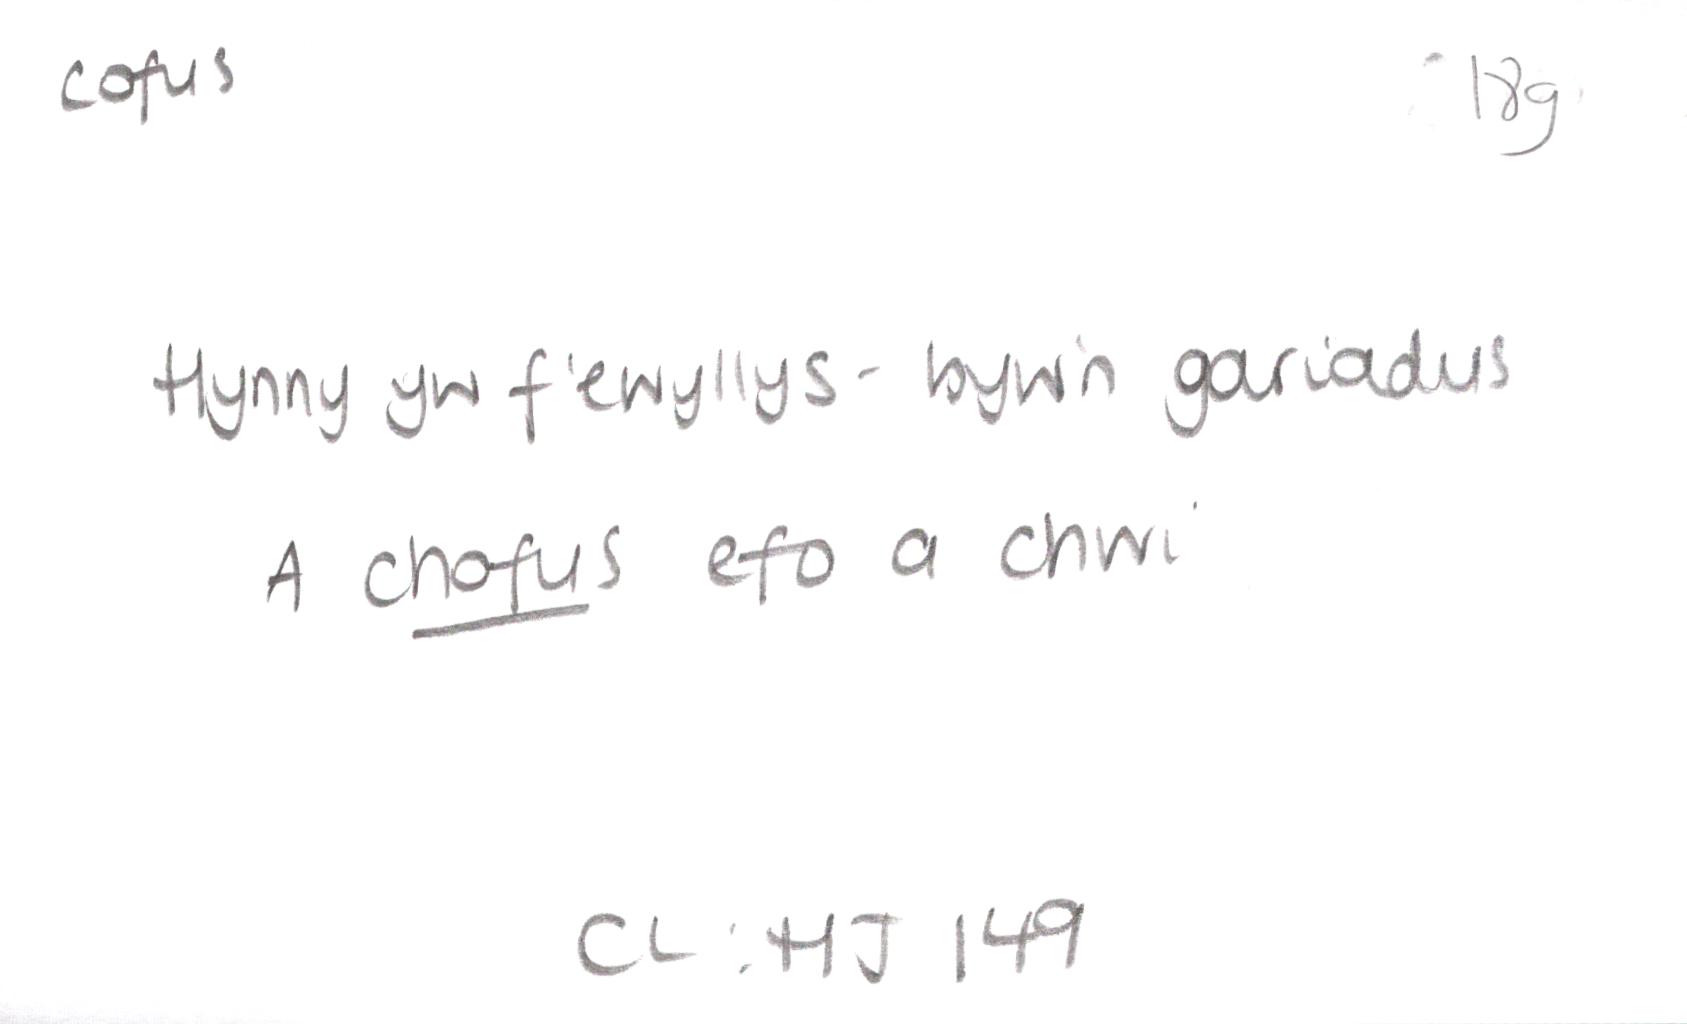 cofus
18g
Hynny yw f'ewyllys - byw'n gariadus
A chofus efo a chwi
CL : HJ 149